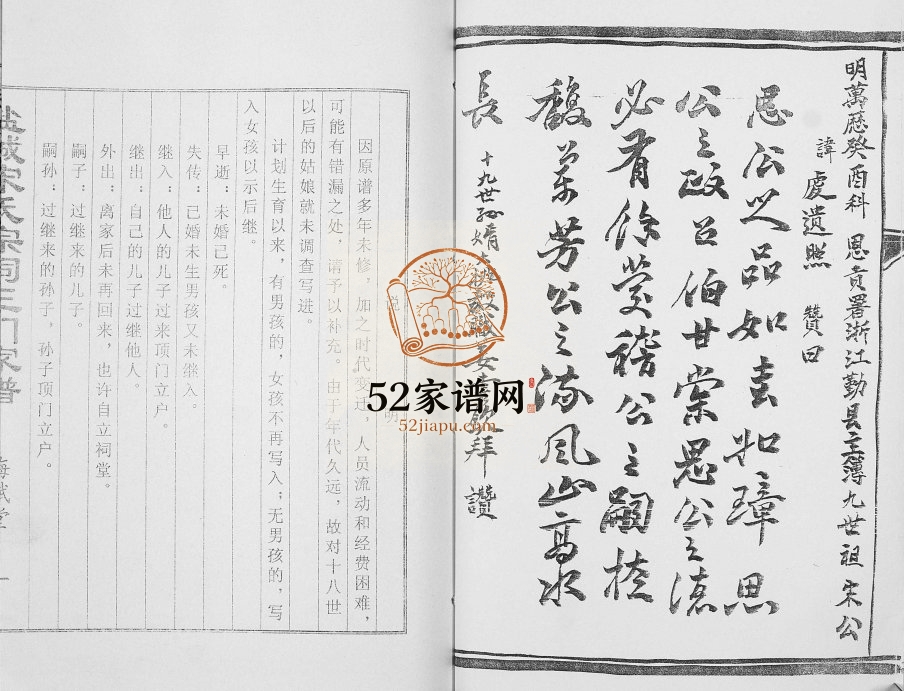 明萬歷癸酉科 恩貢署浙江勤县主簿九世祖 宋公
諱 虔遺照 贊曰
思公之品如圭如璋 思
公之政召伯甘棠思公之德
必有餘慶稽公之嗣桂
馥蘭芳公之流风山高水
長
十九世孙婿 拜讚
说 明
因原谱多年未修,加之时代变迁,人员流动和经费困难,
可能有错漏之处,请予以补充。由于年代久远,故对十八世
以后的姑娘就未调查写进。
计划生育以来,有男孩的,女孩不再写入;无男孩的,写
入女孩以示后继。
早逝:未婚已死。
失传:已婚未生男孩又未继入。
继入:他人的儿子过来顶门立户。
继出:自己的儿子过继他人。
外出:离家后未再回来,也许自立祠堂。
嗣子:过继来的儿子。
嗣孙:过继来的孙子,孙子顶门立户。
盐城宋氏宗祠三门家谱
52家谱网
52jiapu.com